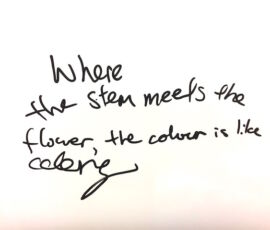 Where
the stem meets the
flower, the colour is like
celery